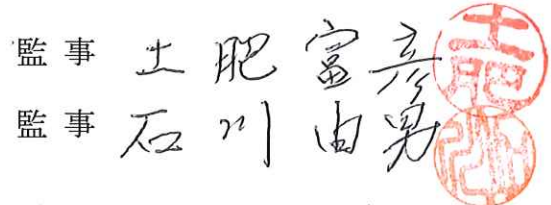 監事 土肥富彦 土肥
監事 石川由男 石川